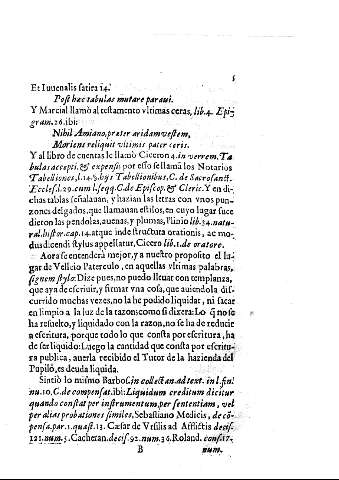 5
Et Iuuenalis satira 14.
Post hæc tabulas mutare paraui.
Y Marcial llamò al testamento vltimas ceras, lib.4. Epi-
gram. 26. ibi:
Nihil Amiano, præter aridam vestem,
Moriens reliquit vltimis pater ceris.
Y al libro de cuentas le llamò Ciceron 4. in verrem. Ta
bulas accepti, & expensi por esso se llamã los Notarios
Tabelliones, l.14. & his Tabellionibus, C. de Sacrosanct.
Ecclesi. l.29. cum l. seqq. C. de Episcop. & Cleric. Y en di-
chas tablas señalauan, y hazian las letras con vnos pun-
zones delgados, que llamauan estilos, en cuyo lugar suce
dieton las pendolas, auenas, y plumas, Plinio lib. 34. natu-
ral. histor. cap. 14. atque inde structura orationis, ac mo-
dus dicendi stylus appellatur, Cicero lib.1. de oratore.
Aora se entenderà mejor, y a nuestro proposito el lu-
gar de Velicio Paterculo, en aquellas vltimas palabras,
signem stylo: Dize pues, no puedo lleuar con templanza,
que aya de escriuir, y firmar vna cosa, que auiendola dis-
currido muchas vezes, no la he podido liquidar, ni sacar
en limpio a la luz de la razon: como si dixera: Lo q̃ no se
ha resuelto, y liquidado con la razon, no se ha de reducir
a escritura, porque todo lo que consta por escritura, ha
de ser liquido: Luego la cantidad que consta por escritu-
ra publica, auerla recibido el Tutor de la hazienda del
Pupilo, es deuda liquida.
Sintiò lo mismo Barbos. in collectan. ad text. in l. fin.
nu.10. C. de compensat. ibi: Liquidum creditum dicitur
quando constat per instrumentum, per sententiam, vel
per alias probationes similes, Sebastiano Medicis, de cõ-
pensa. par.1. quæst. 13. Cæsar de Vrsilis ad Afflictis decis.
121. num. 5. Cacheran. decis. 92. num. 36. Roland. consi. 17.
B
num.